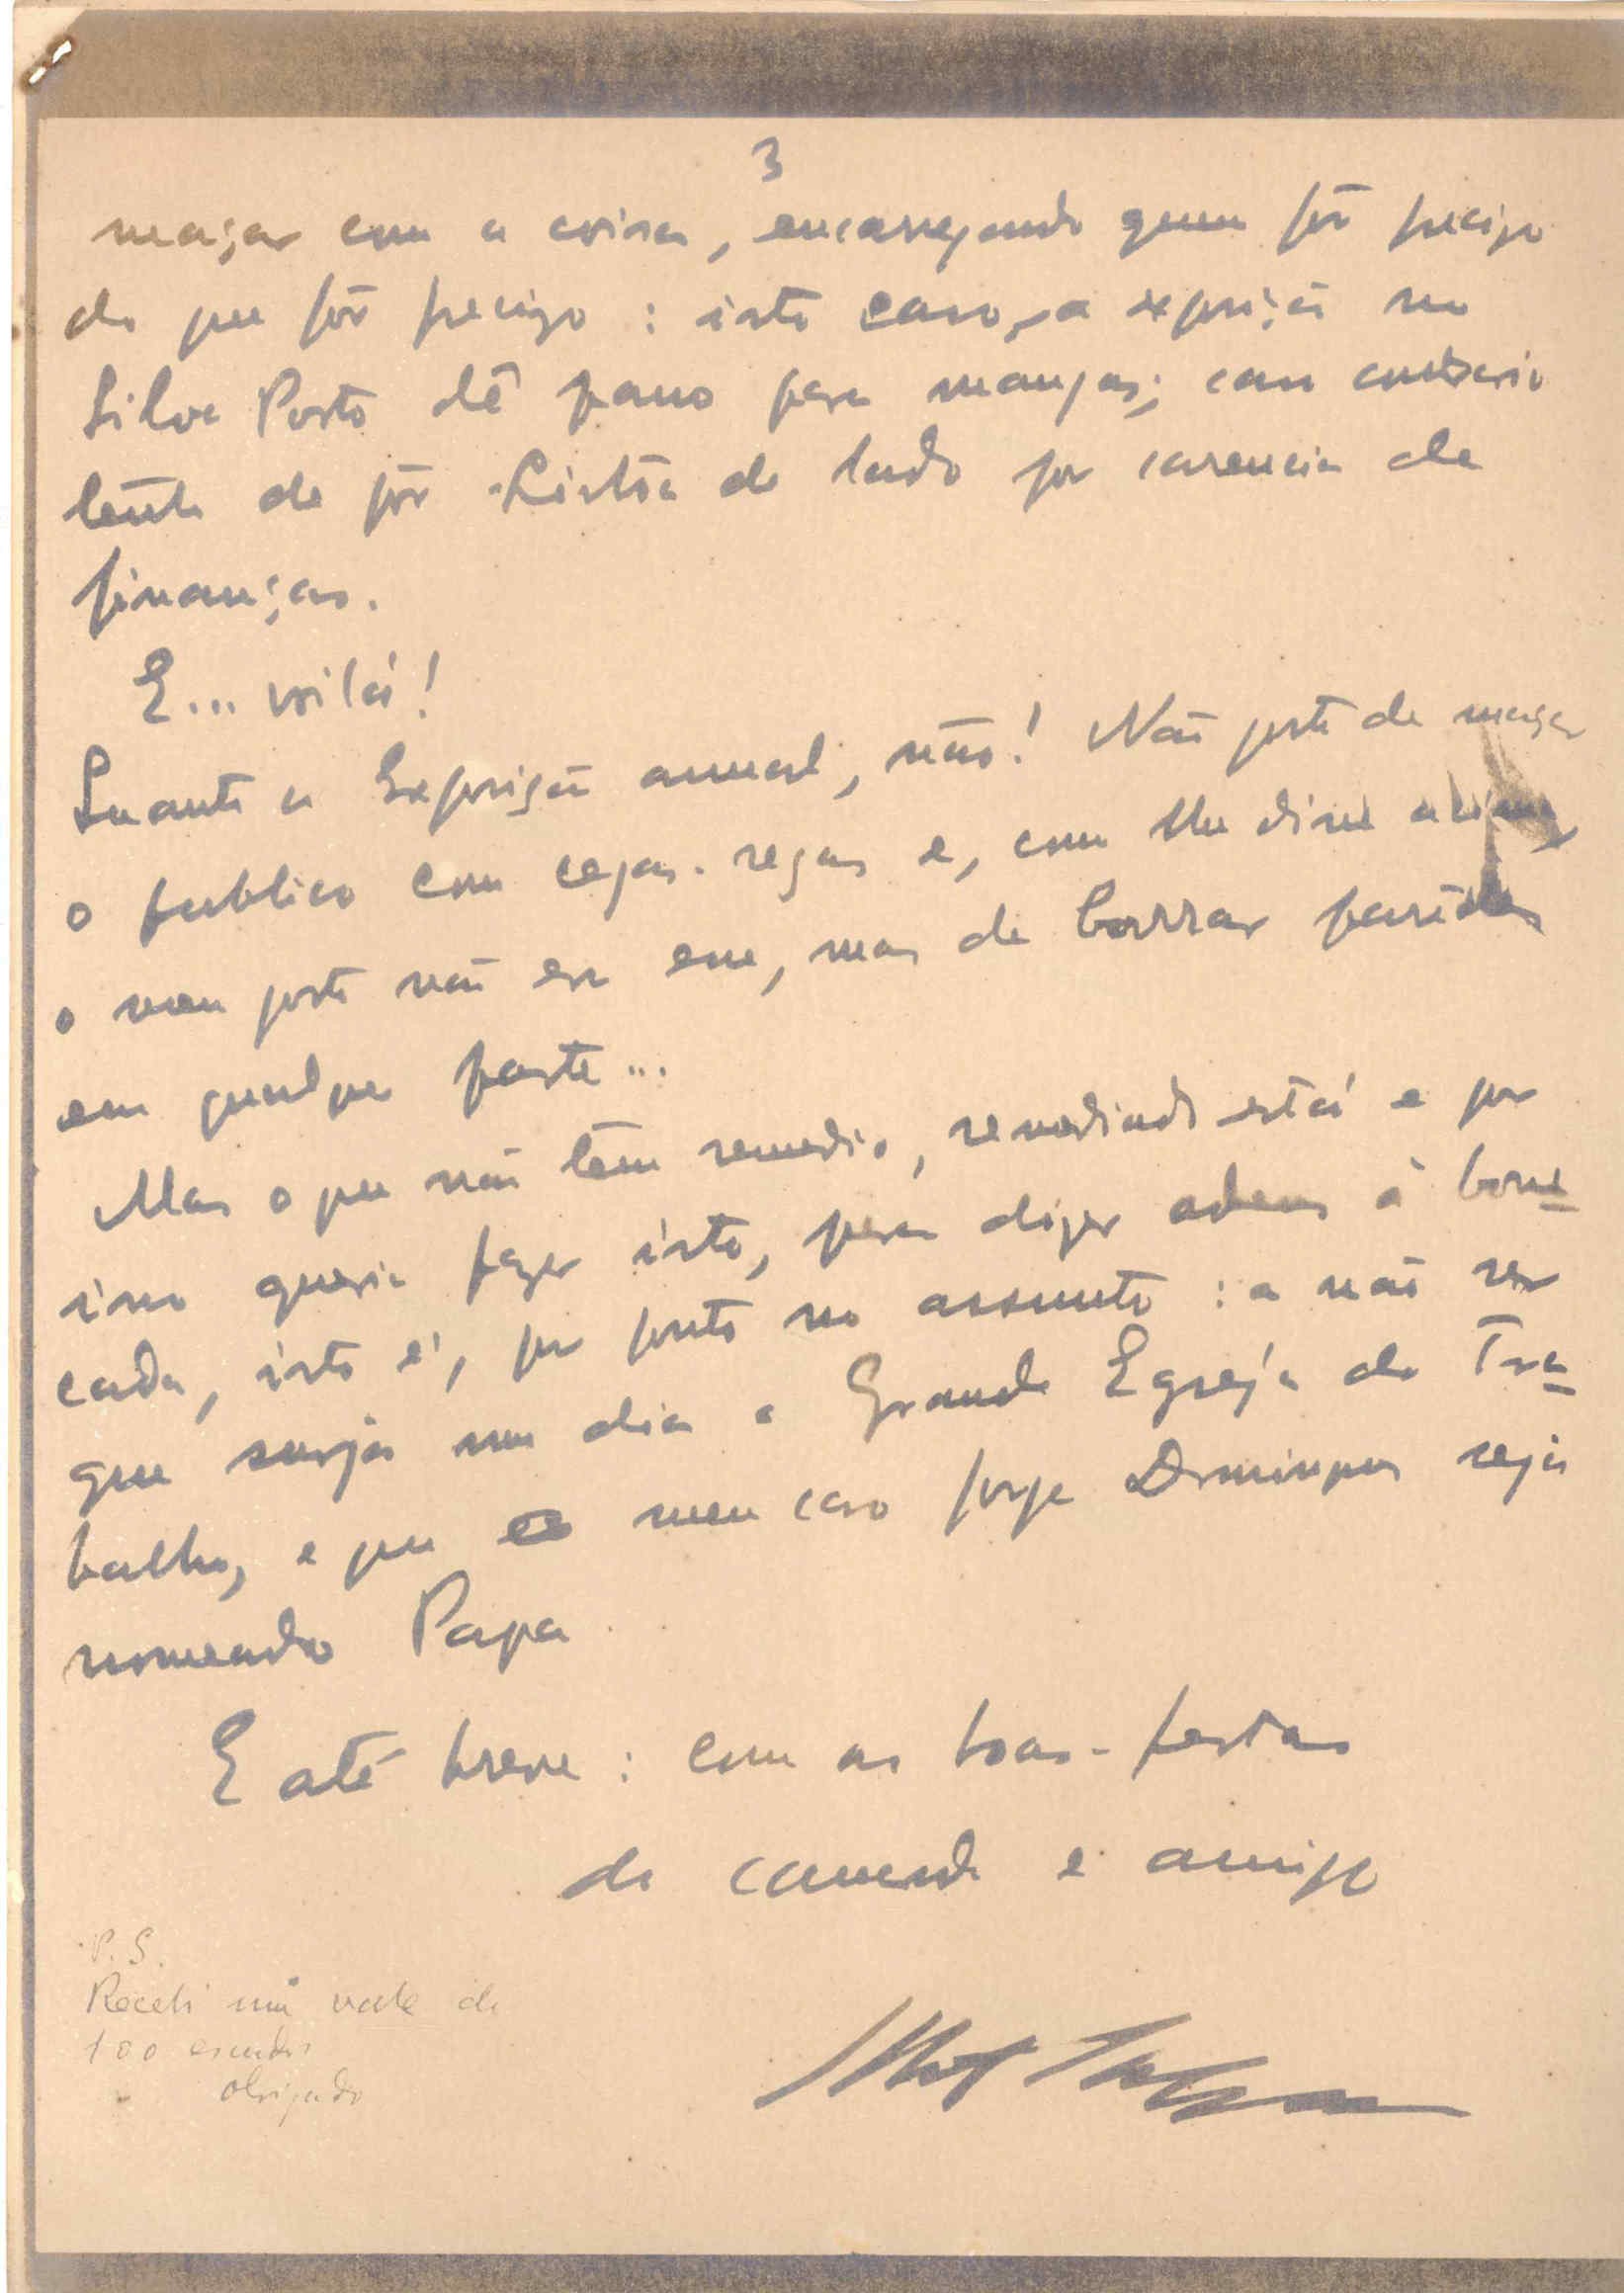 3
maçar com a coisa, encarregando quem fôr precizo
do que fôr precizo: isto caso a expozição no
Silva Porto dê pano para mangas; caso contrario
tenho de pôr Lisbôa de lado por carencia de
finanças.
E... voilá!
Quanto a Expozição anual, não! Não gosto de maçar
o publico com cegas-regas e, como lhe disse
o meu gosto não era esse, mas de borrar parêdes
em qualquer parte...
Mas o que não têm remedio, remediado está e por
isso queria fazer isto, para dizer adeus à bone-
cada, isto é, pôr ponto no assunto: a não ser
que surja um dia a Grande Egreja do Tra-
balho, e que o meu caro Jorge Domingues seja
nomeado Papa
E até breve: com as boas-festas
do camarada e amigo
P. S.
Recebi um vale de
100 escudos
obrigado